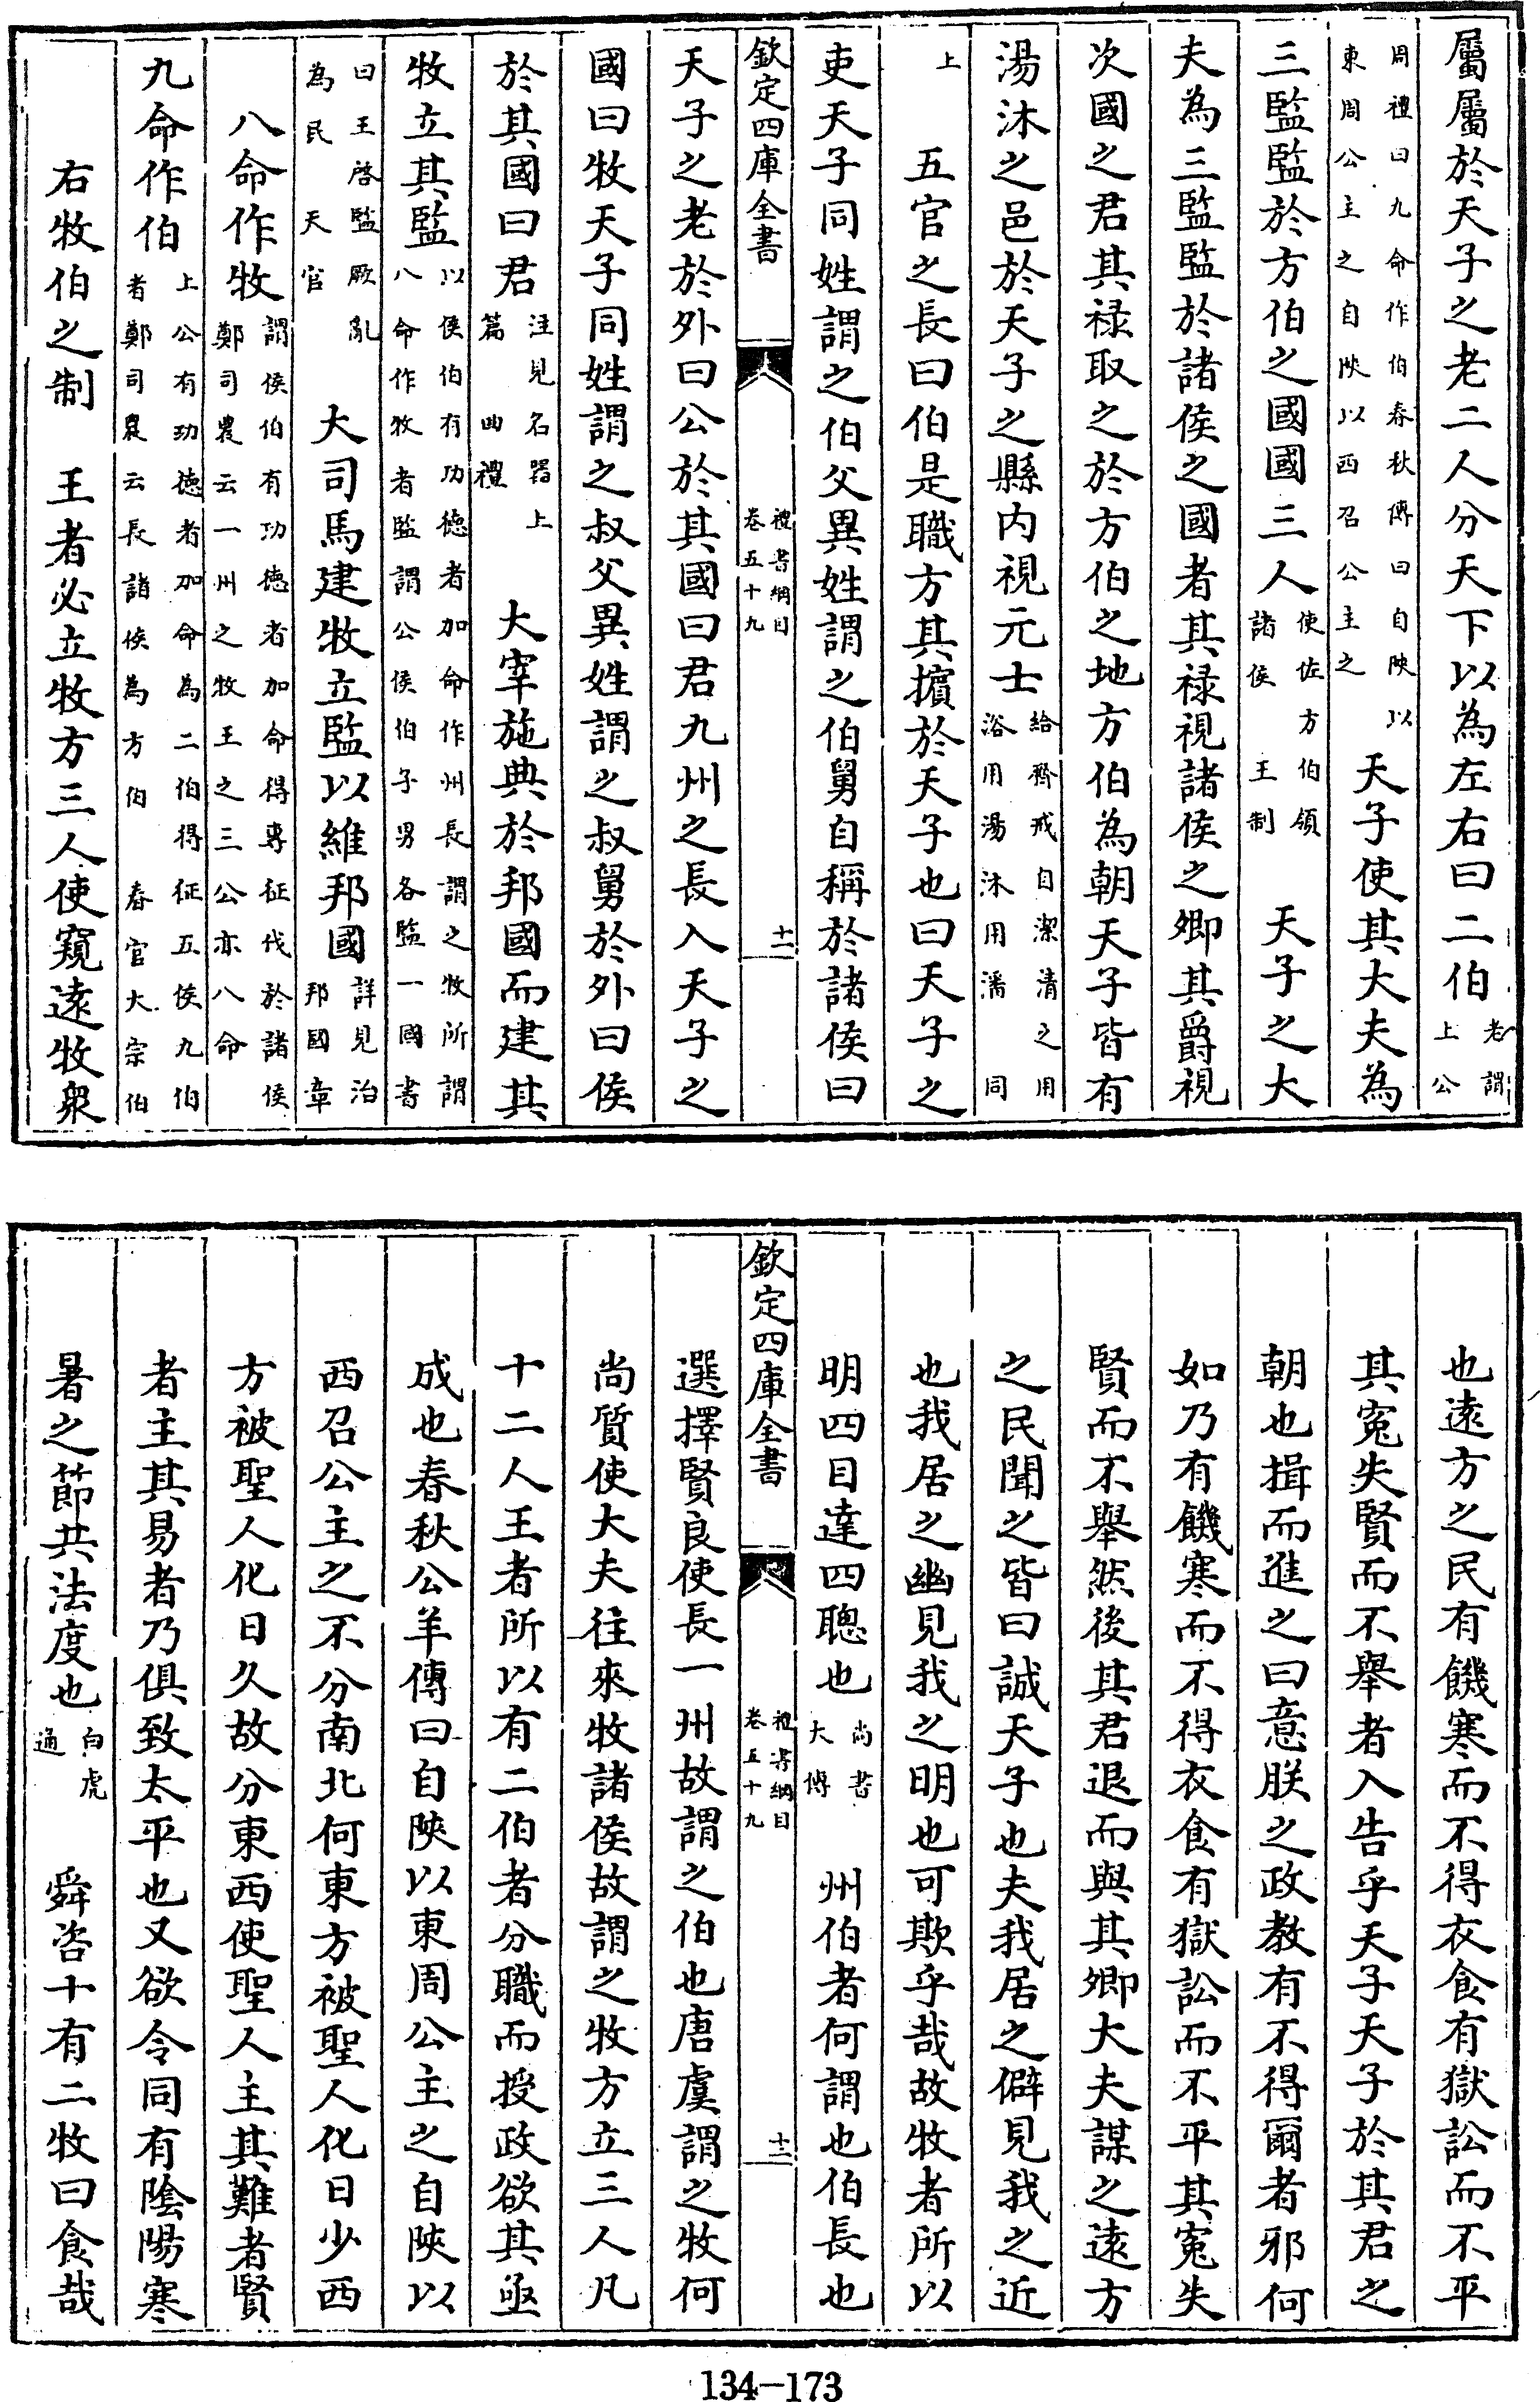 屬屬於天子之老二人分天下以為左右曰二伯老謂上公
周禮曰九命作伯春秋傳曰自陜以東周公主之自陜以西召公主之 天子使其大夫為
三監監於方伯之國國三人使佐方伯領諸侯 王制 天子之大
夫為三監監於諸侯之國者其禄視諸侯之卿其爵視
次國之君其禄取之於方伯之地方伯為朝天子皆有
湯沐之邑於天子之縣内視元士給齊戒自潔清之用浴用湯沐用潘 同
上 五官之長曰伯是職方其擯於天子也曰天子之
吏天子同姓謂之伯父異姓謂之伯舅自稱於諸侯曰
欽定四庫全書 禮書綱目卷五十九 十一
天子之老於外曰公於其國曰君九州之長入天子之
國曰牧天子同姓謂之叔父異姓謂之叔舅於外曰侯
於其國曰君注見名器篇 曲禮上 大宰施典於邦國而建其
牧立其監以侯伯有功德者加命作州長謂之牧所謂八命作牧者監謂公侯伯子男各監一國書
曰王啓監厥亂為民 天官 大司馬建牧立監以維邦國詳見治邦國章
八命作牧謂侯伯有功德者加命得專征伐於諸侯鄭司農云一州之牧王之三公亦八命
九命作伯上公有功德者加命為二伯得征五侯九伯者鄭司農云長諸侯為方伯 春官大宗伯
右牧伯之制 王者必立牧方三人使窺遠牧衆
也遠方之民有饑寒而不得衣食有獄訟而不平
其寃失賢而不舉者入告乎天子天子於其君之
朝也揖而進之曰意朕之政教有不得爾者邪何
如乃有饑寒而不得衣食有獄訟而不平其寃失
賢而不舉然後其君退而與其卿大夫謀之遠方
之民聞之皆曰誠天子也夫我居之僻見我之近
也我居之幽見我之明也可欺乎哉故牧者所以
明四目達四聰也尚書大傳 州伯者何謂也伯長也
欽定四庫全書 禮書綱目卷五十九 十二
選擇賢良使長一州故謂之伯也唐虞謂之牧何
尚質使大夫往來牧諸侯故謂之牧方立三人凡
十二人王者所以有二伯者分職而授政欲其亟
成也春秋公羊傳曰自陜以東周公主之自陜以
西召公主之不分南北何東方被聖人化日少西
方被聖人化日久故分東西使聖人主其難者賢
者主其易者乃俱致太平也又欲令同有陰陽寒
暑之節共法度也白虎通 舜咨十有二牧曰食哉
134-173